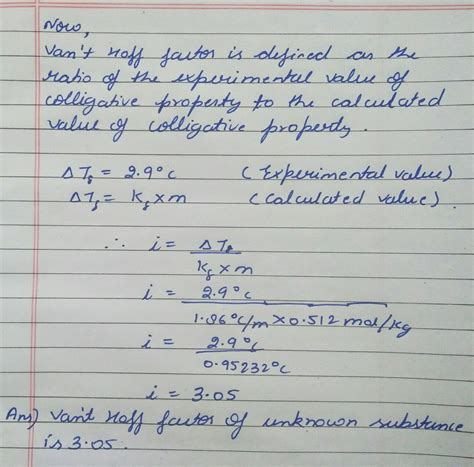 Now,
Van't Hoff factor is defined as the
ratio of the experimental value of
colligative property to the calculated
value of colligative property.
ΔTf = 2.9°C (Experimental value)
ΔTf = Kf × m (Calculated value).
∴ i = ΔTf
Kf × m
i = 2.9°C
1.86°C/m × 0.512 mol/kg
i = 2.9°C
0.95232°C
i = 3.05
Ans) Van't Hoff factor of unknown substance
is 3.05.